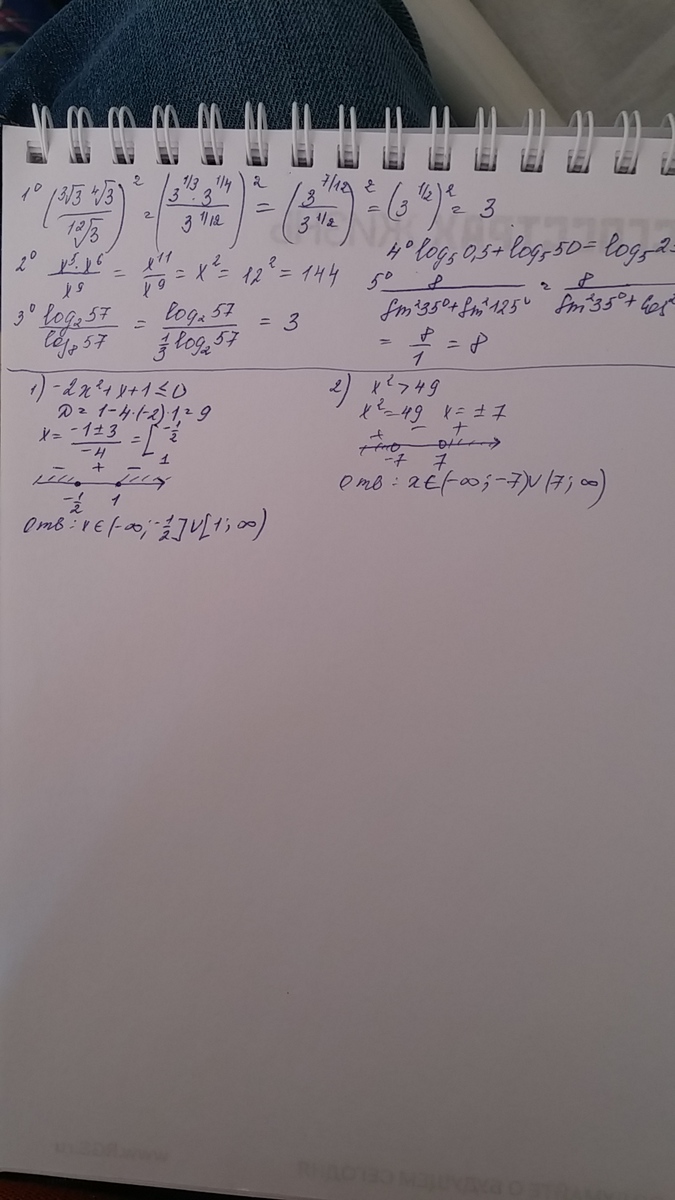 1° (∛3 ∜3 / ¹²√3)² = (3^1/3 · 3^1/4 / 3^1/12)² = (3^7/12 / 3^1/2)² = (3^1/2)² = 3
2° x⁵·x⁶ / x⁹ = x¹¹ / x⁹ = x² = 12² = 144
3° log₂57 / log₈57 = log₂57 / ⅓log₂57 = 3
4° log₅0,5 + log₅50 = log₅2
5° 8 / sin²35° + sin²125° = 8 / sin²35° + cos²
= 8/1 = 8
1) -2x² + x + 1 ≤ 0
D = 1 - 4·(-2)·1 = 9
x = -1±3 / -4 = [ -1/2
1
− + −
-1/2 1
Отв: x ∈ (-∞; -1/2] ∪ [1; ∞)
2) x² > 49
x² = 49 x = ±7
+ − +
-7 7
Отв: x ∈ (-∞; -7) ∪ (7; ∞)